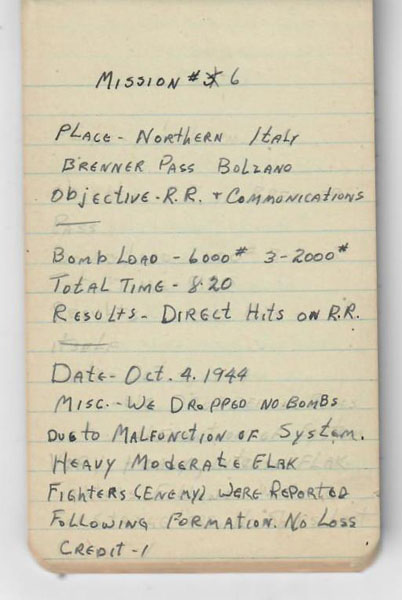 Mission # 6
Place - Northern Italy
Brenner Pass Bolzano
Objective - R.R. + Communications
Pass
Bomb Load - 6000# 3-2000#
Total Time - 8:20
Results - Direct Hits on R.R.
Date - Oct. 4. 1944
Misc. - We Dropped no Bombs
Due to Malfunction of System.
Heavy Moderate Flak
Fighters (Enemy) Were Reported
Following Formation. No Loss
Credit - 1